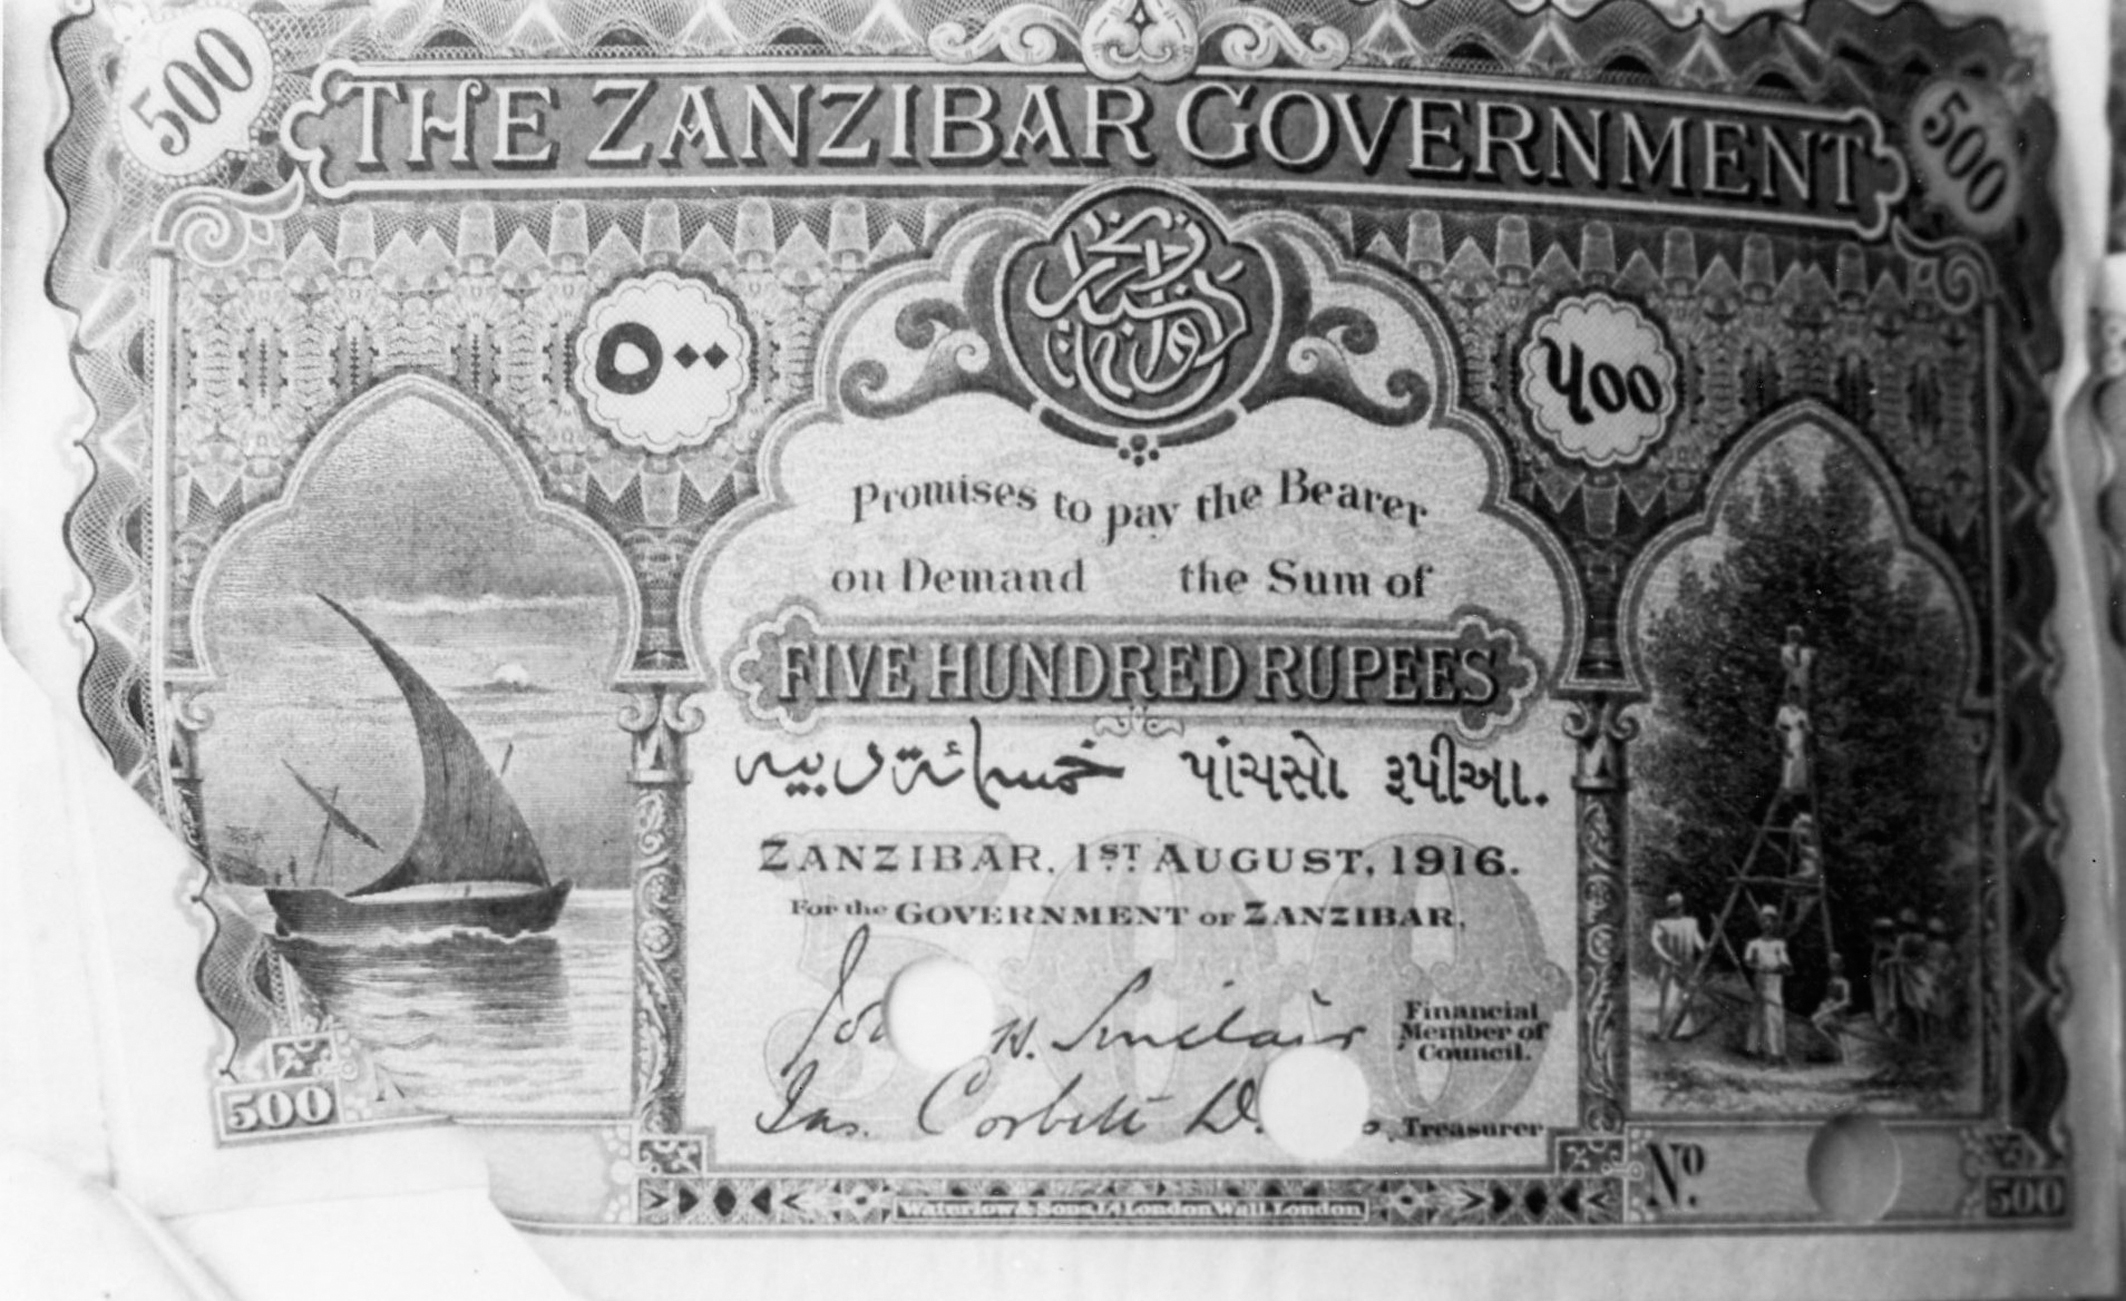 500
THE ZANZIBAR GOVERNMENT
500
٥٠٠
૫૦૦
Promises to pay the Bearer
on Demand the Sum of
FIVE HUNDRED RUPEES
خمسمائة ربيه
પાંચસો રૂપીઆ.
ZANZIBAR, 1ST AUGUST, 1916.
For the GOVERNMENT OF ZANZIBAR,
500
H. Sinclair
Financial
Member of
Council.
Jas. Corbett D.
Treasurer
500
Nº
500
Waterlow & Sons Ld London Wall, London